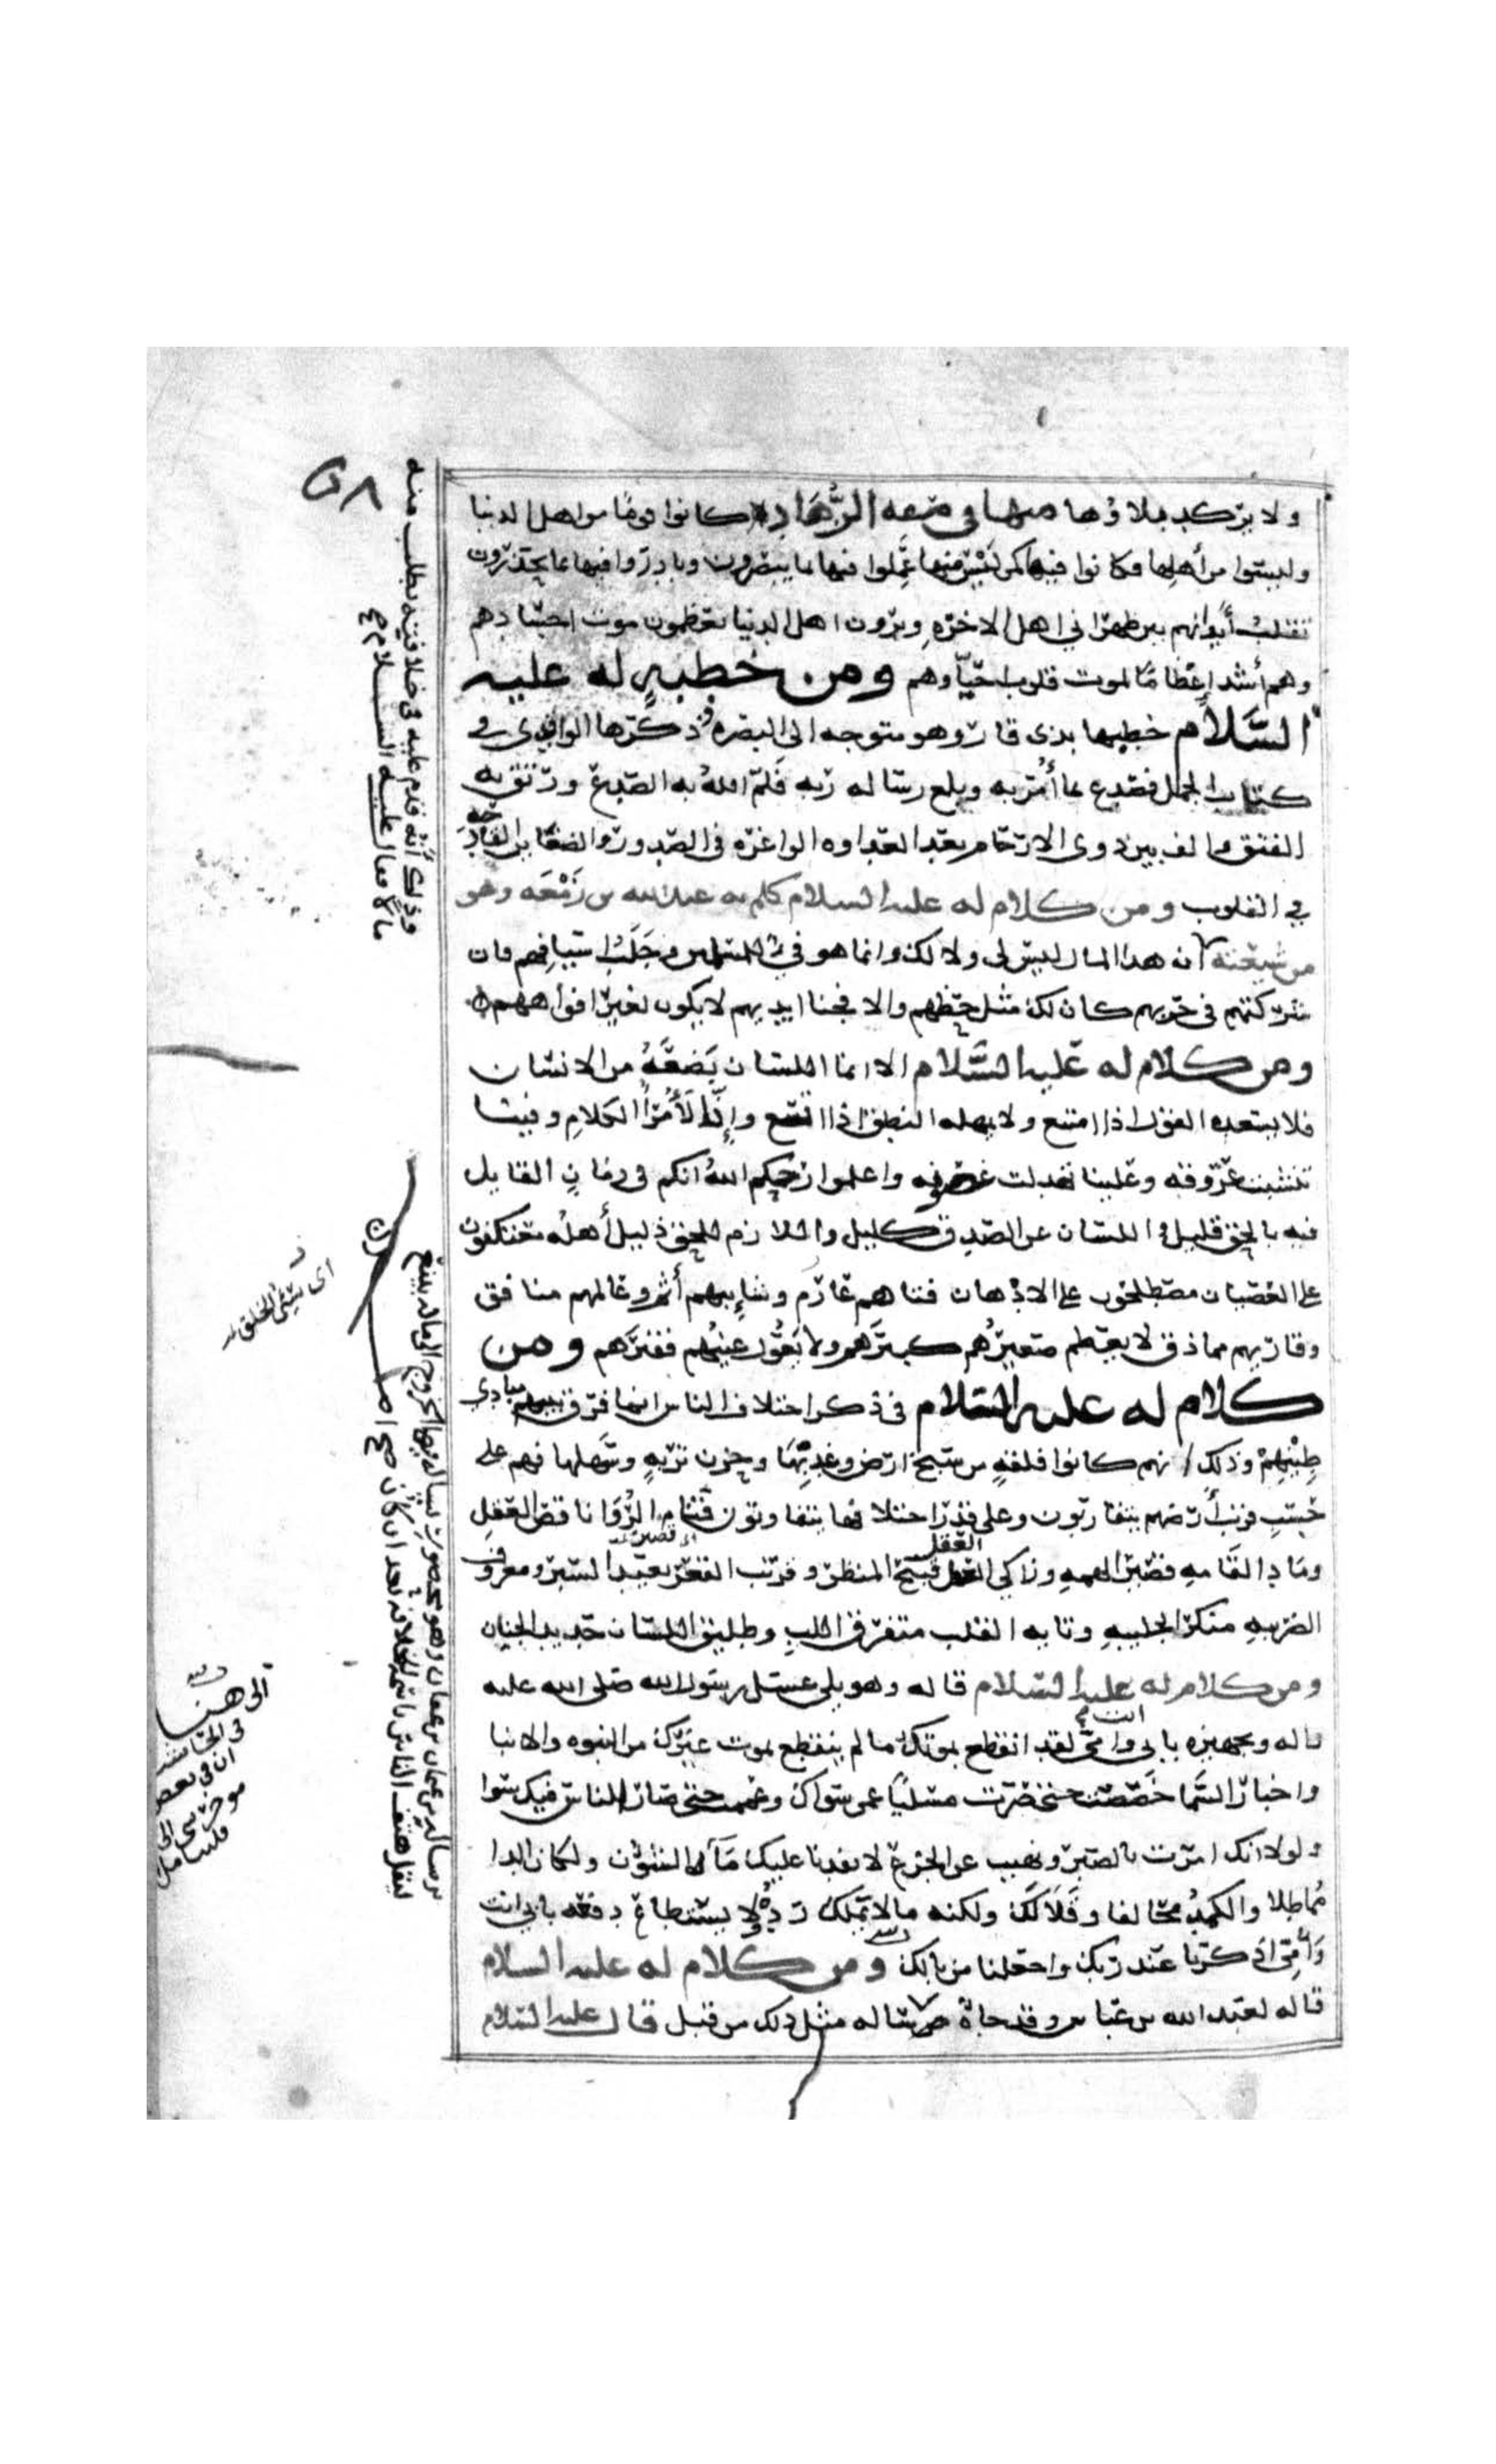 ولا يركد بلاؤها منها في صفه الزُّهَادِ كانوا قومًا من اهل الدنيا
وليسوا من أهلها فكانوا فيها كمن ليس منها عَمِلوا فيها بما يبصرون وبادروا فيها ما يحذرون
تقلبُ أبدانهم بين ظهراني اهل الاخره ويرون اهل الدنيا يعظمون موت اجسادهم
وهم أشد إعظامًا لموت قلوب احيآوهم ومن خطبهٍ له عليه
السَّلام خطبها بذى قار وهو متوجه الى البصره ذكرها الواقدى في
كتاب الجمل فصدع بما أُمر به وبلع رساله ربه فَلمّ اللهُ به الصدع ورتق به
الفتق والف بين ذوى الارحام بعد العداوه الواغره في الصدور والضغاين القادحه
في القلوب ومن كلام له عليه السلام كلم به عبد الله بن زَمْعَه وهو
من شيعته ان هذا المال ليس لى ولا لك وانما هو في للمسلمين وجَلَبُ اسيافهم فان
شركتهم في حربهم كان لك مثل حظهم والا فجنا ايديهم لا يكون لغير افواههم
ومن كلام له عليه السَّلام الا انما اللسان بَضعَةُ من الانسان
فلا يسعده القول اذا امتنع ولا يمهله النطق اذا اتسع وإنّا لَأُمَرَآُ الكلامِ وفينا
تنشبت عروقه وعلينا تهدلت غصونه واعلموا رحمكم اللهُ انكم في زمانٍ القايل
فيه بالحق قليل واللسان عن الصدق كليل واللازم للحق ذليل أهلُه معتكفون
على العصيان مصطلحون على الادهان فتاهم عارم وشايبهم أثم وعالمهم منافق
وقاريهم مماذق لا يعظم صغيرُهم كبيرَهم ولا يَعُولُ غنيُّهم فقيرَهم ومن
كلام له عليه السّلام في ذكر اختلاف الناس انما فرق بينهم مبادي
طِيْنِهِمْ وذلك انهم كانوا فلقهٍ من سبخ ارض وعذبِها وحزن تربهٍ وسَهلها فهم على
حَسَبِ قرب أرضهم يتقاربون وعلى قدر اختلافها يتفاوتون فتام الرُّوَا ناقص العقلِ
ومَادِ القَامهِ قصير الهمهِ وزاكي العمل قبيح المنظر وقريب القعر بعيد السبر ومعروف
العقل
الضريبهِ منكر الجليبهِ وتايه القلب متفرق اللب وطليق اللسان حديد الجنان
ومن كلام له عليه السّلام قاله وهو يلى غسل رسول الله صلى الله عليه
واله وتجهيزه بابى انت وامى لقد انقطع بموتك ما لم ينقطع بموت غيرك من النبوه والانبا
واخبار السَّما خَصَّصت حتى صرت مسليًا عمن سواك وعممت حتى صار الناس فيك سوا
ولولا انك امرت بالصبر ونهيت عن الجزع لانفدنا عليك مَآ الشؤن ولكان الدا
مُماطِلا والكمدُ محالفا وقَلّا لَك ولكنه ما لا تملك ردُّهُ ولا يستطاع دفعه بابى انت
وَأُمّى اذكرنا عند ربك واجعلنا من بالك ومن كلام له عليه السلام
قاله لعبد الله بن عباس وقد جاهُ برساله مثل ذلك من قبل قال عليه السّلام
٥٨
وذلك أنه قدم عليه في خلافته يطلب منه
مالا فقال عليه السلام صح
اى سَيّئ الخلق
برساله من عثمان بن عفان وهو محصور يساله فيها الخروج الى ماله بينبع
ليقل هتف الناس باسمه للخلافه بعد ان كان صح اصل
الى هنا